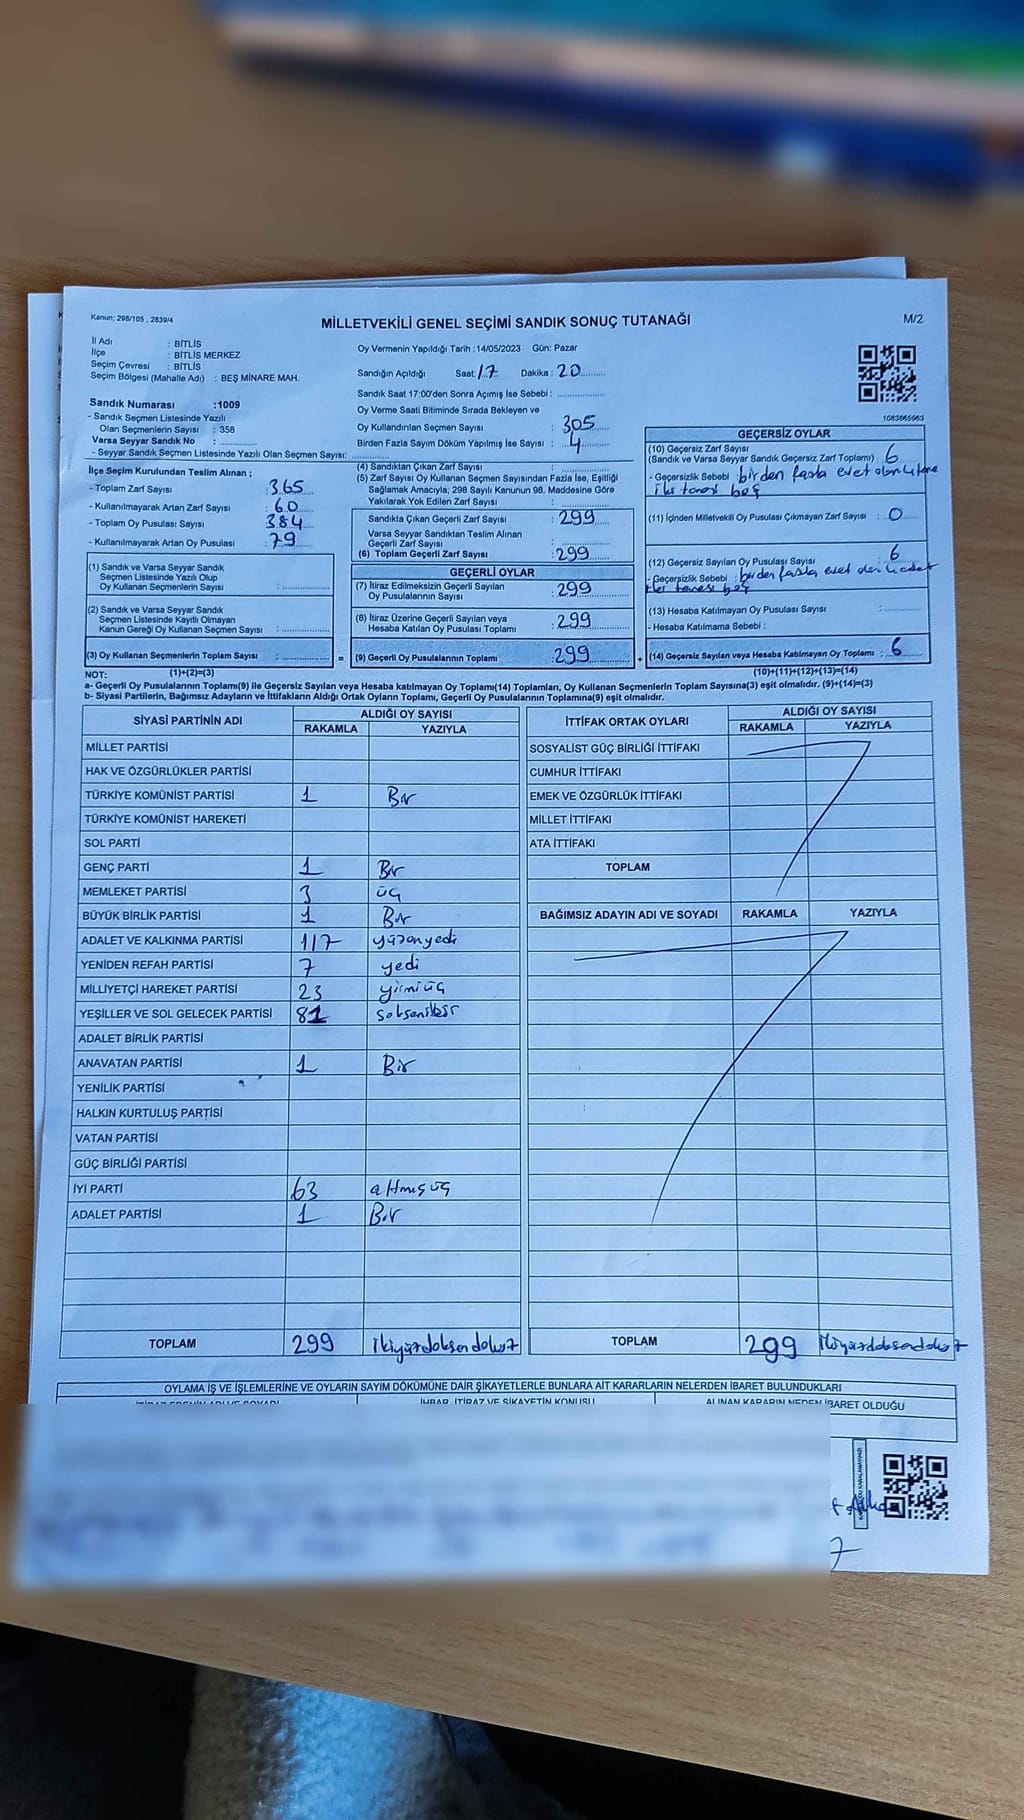 Kanun; 298/105 , 2839/4
MİLLETVEKİLİ GENEL SEÇİMİ SANDIK SONUÇ TUTANAĞI
M/2
İl Adı : BİTLİS
İlçe : BİTLİS MERKEZ
Seçim Çevresi : BİTLİS
Seçim Bölgesi (Mahalle Adı) : BEŞ MİNARE MAH.
Oy Vermenin Yapıldığı Tarih :14/05/2023 Gün: Pazar
Sandığın Açıldığı Saat: 17 Dakika : 20
Sandık Saat 17:00'den Sonra Açımış İse Sebebi :
Oy Verme Saati Bitiminde Sırada Bekleyen ve
Oy Kullandırılan Seçmen Sayısı : 305
Birden Fazla Sayım Döküm Yapılmış İse Sayısı : 4
Sandık Numarası :1009
- Sandık Seçmen Listesinde Yazılı
Olan Seçmenlerin Sayısı : 358
Varsa Seyyar Sandık No :
- Seyyar Sandık Seçmen Listesinde Yazılı Olan Seçmen Sayısı:
İlçe Seçim Kurulundan Teslim Alınan ;
- Toplam Zarf Sayısı : 365
- Kullanılmayarak Artan Zarf Sayısı : 60
- Toplam Oy Pusulası Sayısı : 384
- Kullanılmayarak Artan Oy Pusulası : 79
(1) Sandık ve Varsa Seyyar Sandık
Seçmen Listesinde Yazılı Olup
Oy Kullanan Seçmenlerin Sayısı :
(2) Sandık ve Varsa Seyyar Sandık
Seçmen Listesinde Kayıtlı Olmayan
Kanun Gereği Oy Kullanan Seçmen Sayısı :
(3) Oy Kullanan Seçmenlerin Toplam Sayısı :
(1)+(2)=(3)
(4) Sandıktan Çıkan Zarf Sayısı :
(5) Zarf Sayısı Oy Kullanan Seçmen Sayısından Fazla İse, Eşitliği
Sağlamak Amacıyla; 298 Sayılı Kanunun 98. Maddesine Göre
Yakılarak Yok Edilen Zarf Sayısı :
Sandıkta Çıkan Geçerli Zarf Sayısı : 299
Varsa Seyyar Sandıktan Teslim Alınan
Geçerli Zarf Sayısı :
(6) Toplam Geçerli Zarf Sayısı : 299
GEÇERLİ OYLAR
(7) İtiraz Edilmeksizin Geçerli Sayılan
Oy Pusulalarının Sayısı : 299
(8) İtiraz Üzerine Geçerli Sayılan veya
Hesaba Katılan Oy Pusulası Toplamı : 299
= (9) Geçerli Oy Pusulalarının Toplamı : 299
1083865963
GEÇERSİZ OYLAR
(10) Geçersiz Zarf Sayısı
(Sandık ve Varsa Seyyar Sandık Geçersiz Zarf Toplamı) : 6
- Geçersizlik Sebebi : birden fazla evet
iki tanesi boş
(11) İçinden Milletvekili Oy Pusulası Çıkmayan Zarf Sayısı : 0
(12) Geçersiz Sayılan Oy Pusulası Sayısı : 6
- Geçersizlik Sebebi : birden fazla evet
tanesi boş
(13) Hesaba Katılmayan Oy Pusulası Sayısı :
- Hesaba Katılmama Sebebi :
+ (14) Geçersiz Sayılan veya Hesaba Katılmayan Oy Toplamı : 6
(10)+(11)+(12)+(13)=(14)
NOT:
a- Geçerli Oy Pusulalarının Toplamı(9) ile Geçersiz Sayılan veya Hesaba katılmayan Oy Toplamı(14) Toplamları, Oy Kullanan Seçmenlerin Toplam Sayısına(3) eşit olmalıdır. (9)+(14)=(3)
b- Siyasi Partilerin, Bağımsız Adayların ve İttifakların Aldığı Ortak Oyların Toplamı, Geçerli Oy Pusulalarının Toplamına(9) eşit olmalıdır.
SİYASİ PARTİNİN ADI ALDIĞI OY SAYISI
RAKAMLA YAZIYLA
MİLLET PARTİSİ
HAK VE ÖZGÜRLÜKLER PARTİSİ
TÜRKİYE KOMÜNİST PARTİSİ 1 Bir
TÜRKİYE KOMÜNİST HAREKETİ
SOL PARTİ
GENÇ PARTİ 1 Bir
MEMLEKET PARTİSİ 3 üç
BÜYÜK BİRLİK PARTİSİ 1 Bir
ADALET VE KALKINMA PARTİSİ 117 yüzonyedi
YENİDEN REFAH PARTİSİ 7 yedi
MİLLİYETÇİ HAREKET PARTİSİ 23 yirmiüç
YEŞİLLER VE SOL GELECEK PARTİSİ 81 seksenbir
ADALET BİRLİK PARTİSİ
ANAVATAN PARTİSİ 1 Bir
YENİLİK PARTİSİ
HALKIN KURTULUŞ PARTİSİ
VATAN PARTİSİ
GÜÇ BİRLİĞİ PARTİSİ
İYİ PARTİ 63 altmışüç
ADALET PARTİSİ 1 Bir
TOPLAM 299 ikiyüzdoksandokuz
İTTİFAK ORTAK OYLARI ALDIĞI OY SAYISI
RAKAMLA YAZIYLA
SOSYALİST GÜÇ BİRLİĞİ İTTİFAKI
CUMHUR İTTİFAKI
EMEK VE ÖZGÜRLÜK İTTİFAKI
MİLLET İTTİFAKI
ATA İTTİFAKI
TOPLAM
BAĞIMSIZ ADAYIN ADI VE SOYADI RAKAMLA YAZIYLA
TOPLAM 299 ikiyüzdoksandokuz
OYLAMA İŞ VE İŞLEMLERİNE VE OYLARIN SAYIM DÖKÜMÜNE DAİR ŞİKAYETLERLE BUNLARA AİT KARARLARIN NELERDEN İBARET BULUNDUKLARI
İHBAR, İTİRAZ VE ŞİKAYETİN KONUSU ALINAN KARARIN NEDEN İBARET OLDUĞU